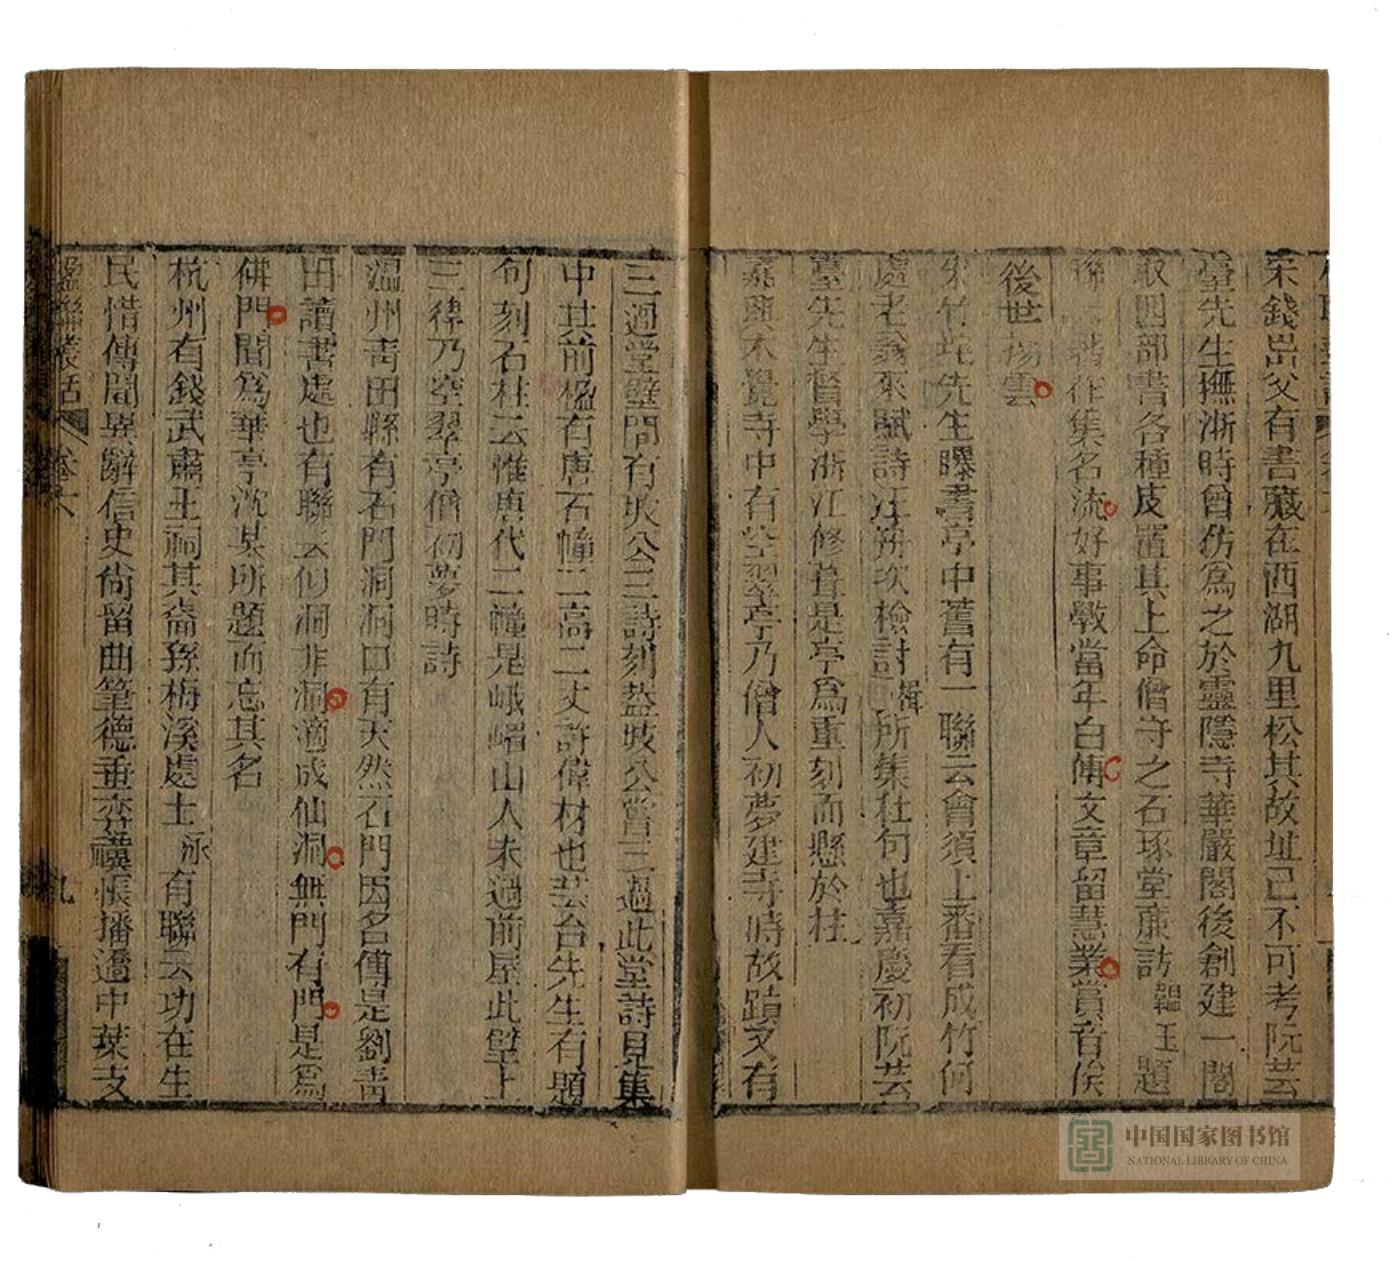 宋錢岊父有書藏在西湖九里松其故址已不可考阮芸
臺先生撫浙時曾仿爲之於靈隱寺華嚴閣後創建一閣
取四部書各種庋置其上命僧守之石琢堂廉訪韞玉題
聯云 在集名流好事斆當年白傅文章留慧業賞音俟
後世揚雲
朱竹垞先生曝書亭中舊有一聯云會須上番看成竹何
處老翁來賦詩汪舟次檢討楫所集杜句也嘉慶初阮芸
臺先生督學浙江修葺是亭爲重刻而懸於柱
嘉興本覺寺中有空翠亭乃僧人初夢建寺時故蹟又有
三過堂壁間有坡公三詩刻葢坡公嘗三過此堂詩見集
中其前楹有唐石幢二高二丈許偉材也芸台先生有題
句刻石柱云惟唐代二幢是峨嵋山人未過前屋此壁上
三律乃空翠亭僧初夢時詩
溫州靑田縣有石門洞洞口有天然石門因名傳是劉靑
田讀書處也有聯云似洞非洞適成仙洞無門有門是爲
佛門聞爲華亭沈某所題而忘其名
杭州有錢武肅王祠其裔孫梅溪處士泳有聯云功在生
民惜傳聞異辭信史尙留曲筆德垂弈禩悵播遷中葉支
楹聯叢話
卷六
九
中国国家图书馆
NATIONAL LIBRARY OF CHINA